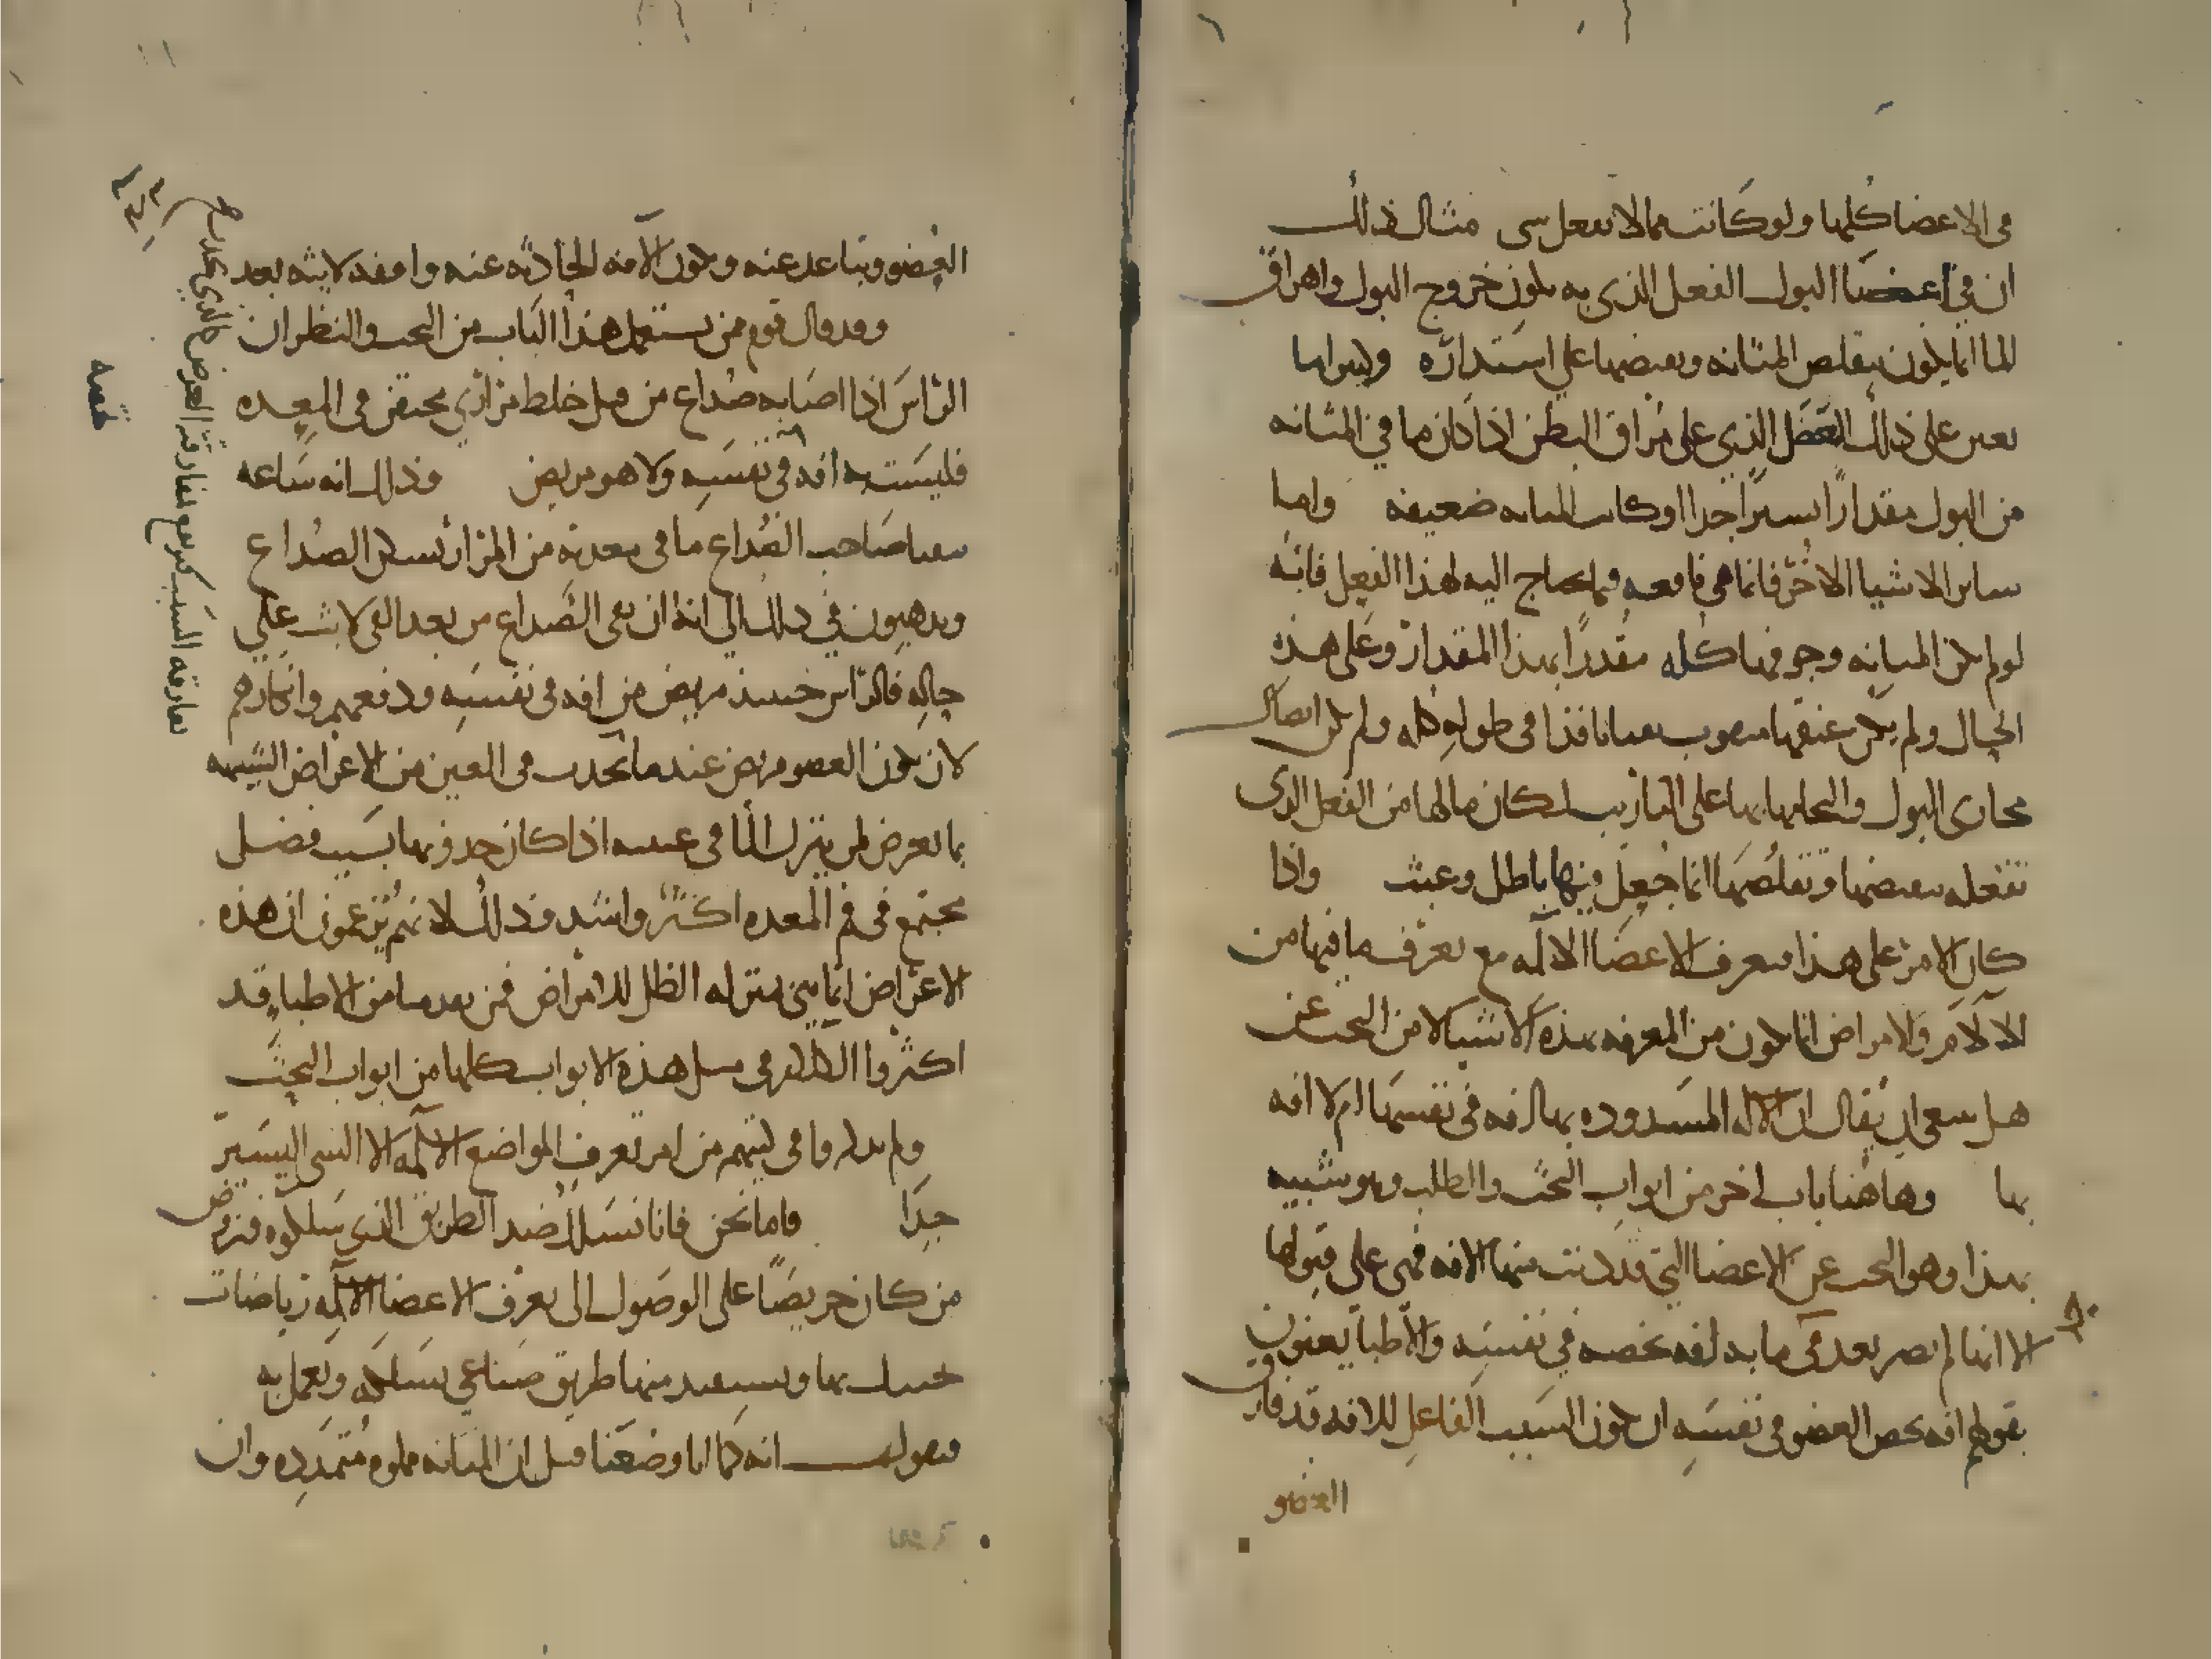 في الاعضا كلها ولو كانت مما لا يفعل شي مثال ذلك
ان في اعضا البول الفعل الذي به يكون خروج البول واهراق
الما انما يكون بتقلص المثانه وبعضها على استداره وليس انما
يعين على ذلك العضل الذي على مراق البطن اذا كان ما في المثانه
من البول مقدارا يسيرا جدا او كانت المثانه ضعيفه واما
ساير الاشيا الاخر فانما هي نافعه فيما يحتاج اليه لهذا الفعل فانه
لو لم تكن المثانه وجوفها كله مقدرا بهذا المقدار وعلى هذه
الحال ولم يكن عنقها مثقوب ثقبا نافذا في طوله كله ولم يكن اتصال
مجاري البول والتحامها بها على التاريب لكان ما لها من الفعل الذي
تفعله ببعضها وتقلصها انما جعل فيها باطل وعبث واذا
كان الامر على هذا فتعرف الاعضا الالمه مع تعرف ما فيها من
الالام والامراض انما يكون من المعرفه بهذه الاشيا لا من البحث عن
هل ينبغي ان يقال ان الاله المسدوده بها افه في نفسها ام لا افه
بها وهاهنا باب اخر من ابواب البحث والطلب وهو شبيه
بهذا وهو البحث عن الاعضا التي قد دنت منها الافه فهي على قبولها
الا انها لم تصر بعد في ما بها افه تخصه في نفسه والاطبا يعنون
بقولهم افه تخص العضو في نفسه ان يكون السبب الفاعل للافه قد فارق
العضو
العضو وتباعد عنه وتكون الافه الحادثه عنه واقفه لابثه بعد
وقد قال قوم ممن يستعمل هذا الباب من البحث والنظر ان
الراس اذا اصابه صداع من قبل خلط مراري محتقن في المعده
فليست به افه في نفسه ولا هو مريض وذلك انه ساعه
يتقيا صاحب الصداع ما في معدته من المرار يسكن الصداع
ويذهبون في ذلك الى انه ان بقي الصداع من بعد القي لابث على
حاله فالراس حينئذ مريض من افه في نفسه ودفعهم وانكارهم
لان يكون العضو مريض عندما تحدث في العين من الاعراض الشبيهه
بما تعرض لمن ينزل الما في عينيه اذا كان حدوثها بسبب فضل
يجتمع في فم المعده اكثر واشد وذلك لانهم يزعمون ان هذه
الاعراض انما هي بمنزله الظل للامراض فمن بعدهما من الاطبا قد
اكثروا الكلام في مثل هذه الابواب كلها من ابواب البحث
ولم يذكروا في كتبهم من امر تعرف المواضع الالمه الا الشي اليسير
جدا فاما نحن فانا نسلك ضد الطريق الذي سلكوه فنروض
من كان حريصا على الوصول الى تعرف الاعضا الالمه رياضات
يحتنك بها ويستفيد منها طريق صناعي يسلكه ويعمل به
فنقول انه كما انا وضعنا قبل ان المثانه مملوه متمدده وان